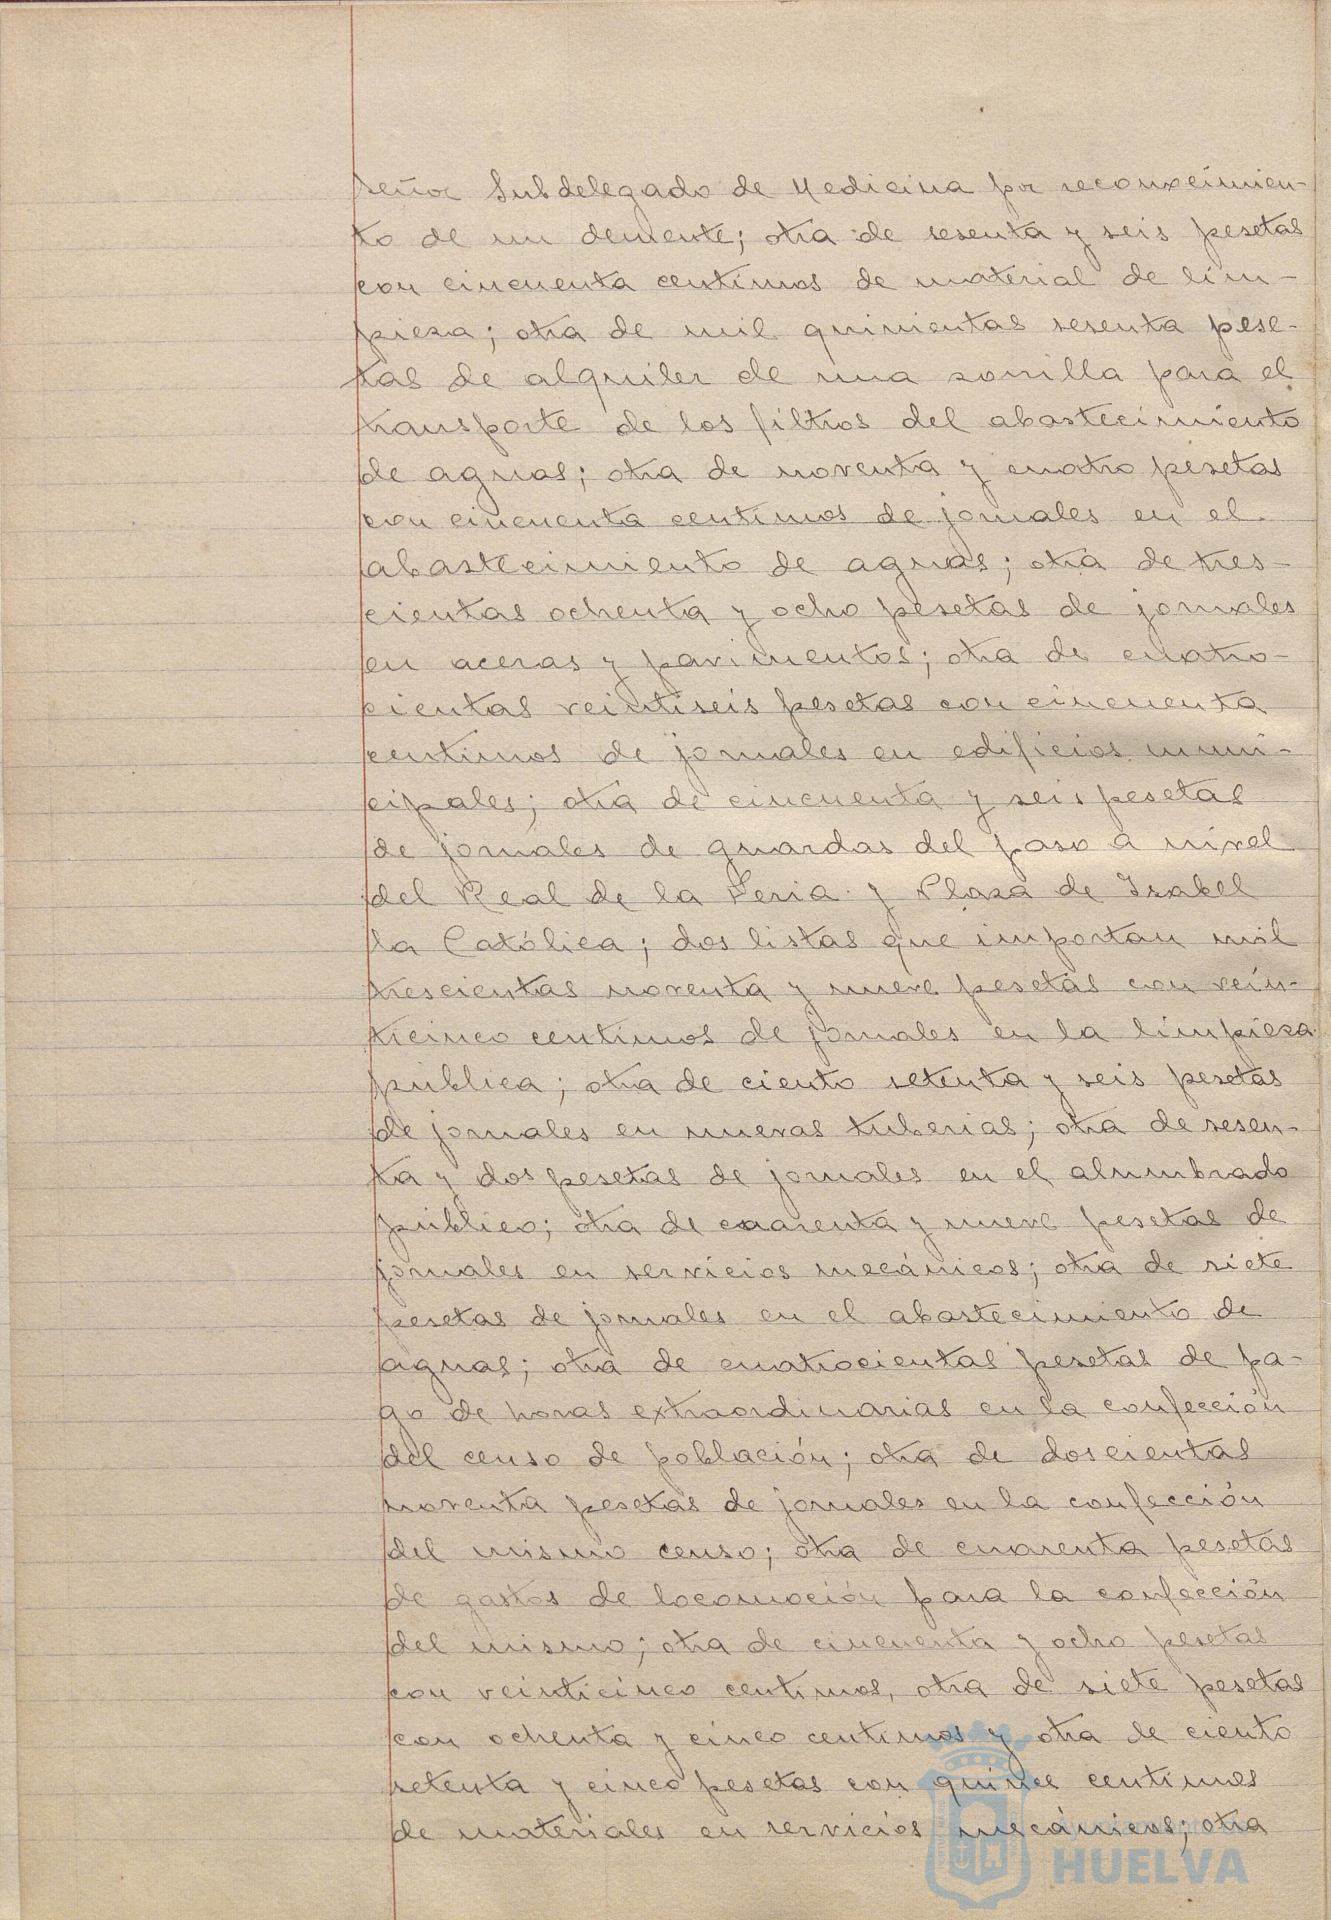 señor Subdelegado de Medicina por reconocimien-
to de un demente; otra de sesenta y seis pesetas
con cincuenta centimos de material de lim-
pieza; otra de mil quinientas sesenta pese-
tas de alquiler de una zorrilla para el
transporte de los filtros del abastecimiento
de aguas; otra de noventa y cuatro pesetas
con cincuenta centimos de jornales en el
abastecimiento de aguas; otra de tres-
cientas ochenta y ocho pesetas de jornales
en aceras y pavimentos; otra de cuatro-
cientas veintiseis pesetas con cincuenta
centimos de jornales en edificios muni-
cipales; otra de cincuenta y seis pesetas
de jornales de guardas del paso a nivel
del Real de la Feria y Plaza de Isabel
la Católica; dos listas que importan mil
trescientas noventa y nueve pesetas con vein-
ticinco centimos de jornales en la limpieza
publica; otra de ciento setenta y seis pesetas
de jornales en nuevas tuberias; otra de sesen-
ta y dos pesetas de jornales en el alumbrado
público; otra de cuarenta y nueve pesetas de
jornales en servicios mecánicos; otra de siete
pesetas de jornales en el abastecimiento de
aguas; otra de cuatrocientas pesetas de pa-
go de horas extraordinarias en la confección
del censo de población; otra de doscientas
noventa pesetas de jornales en la confección
del mismo censo; otra de cuarenta pesetas
de gastos de locomoción para la confección
del mismo; otra de cincuenta y ocho pesetas
con veinticinco centimos, otra de siete pesetas
con ochenta y cinco centimos y otra de ciento
setenta y cinco pesetas con quince centimos
de materiales en servicios mecánicos; otra
HUELVA